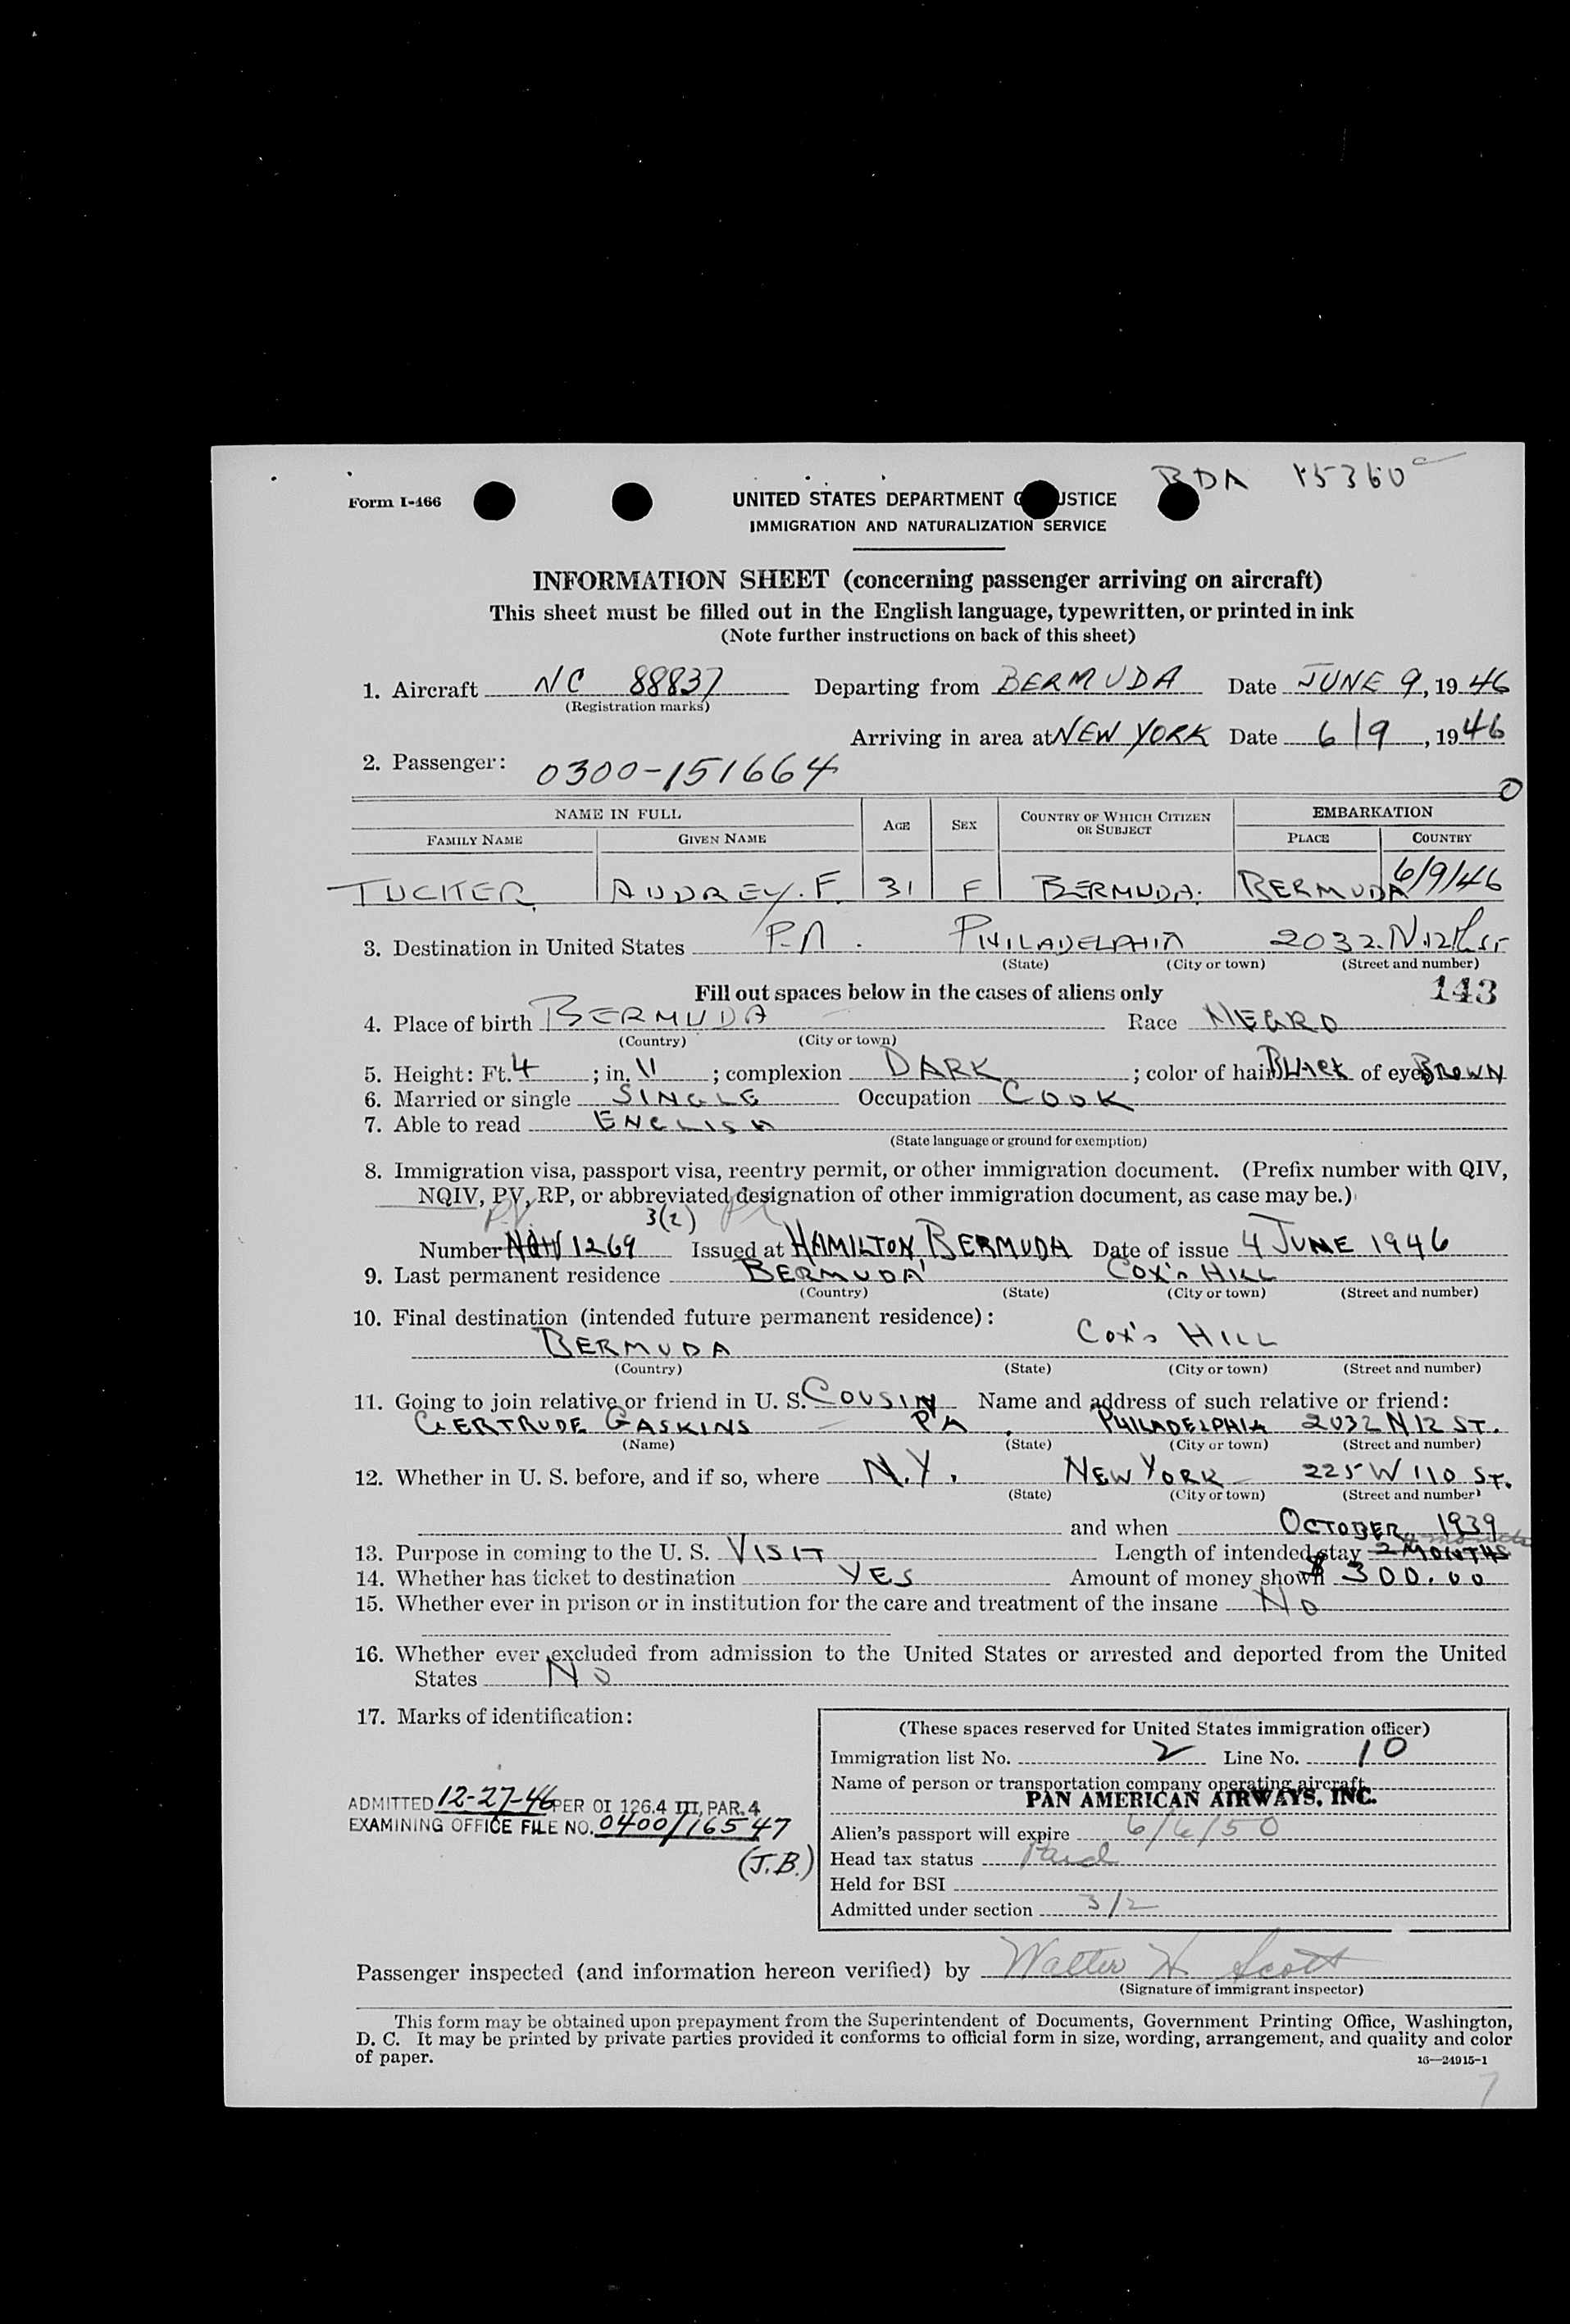 BDA 15360
Form I-466
UNITED STATES DEPARTMENT OF JUSTICE
IMMIGRATION AND NATURALIZATION SERVICE
INFORMATION SHEET (concerning passenger arriving on aircraft)
This sheet must be filled out in the English language, typewritten, or printed in ink
(Note further instructions on back of this sheet)
1. Aircraft NC 88837 Departing from BERMUDA Date JUNE 9, 19 46
(Registration marks)
Arriving in area at NEW YORK Date 6/9, 19 46
2. Passenger: 0300-151664
0
NAME IN FULL AGE SEX COUNTRY OF WHICH CITIZEN OR SUBJECT EMBARKATION
FAMILY NAME GIVEN NAME PLACE COUNTRY
TUCKER AUDREY. F. 31 F BERMUDA. BERMUDA 6/9/46
3. Destination in United States P.A. PHILADELPHIA 2032. N. 12th ST
(State) (City or town) (Street and number)
Fill out spaces below in the cases of aliens only 143
4. Place of birth BERMUDA Race NEGRO
(Country) (City or town)
5. Height: Ft. 4; in. 11; complexion DARK; color of hair BLACK of eyes BROWN
6. Married or single SINGLE Occupation COOK
7. Able to read ENGLISH
(State language or ground for exemption)
8. Immigration visa, passport visa, reentry permit, or other immigration document. (Prefix number with QIV,
NQIV, PV, RP, or abbreviated designation of other immigration document, as case may be.)
P.V. 3(2)
Number NQIV 1269 Issued at HAMILTON BERMUDA Date of issue 4 JUNE 1946
9. Last permanent residence BERMUDA COX'S HILL
(Country) (State) (City or town) (Street and number)
10. Final destination (intended future permanent residence):
BERMUDA COX'S HILL
(Country) (State) (City or town) (Street and number)
11. Going to join relative or friend in U. S. COUSIN Name and address of such relative or friend:
GERTRUDE GASKINS PA. PHILADELPHIA 2032 N 12 ST.
(Name) (State) (City or town) (Street and number)
12. Whether in U. S. before, and if so, where N.Y. NEW YORK 225 W 110 ST.
(State) (City or town) (Street and number)
and when OCTOBER, 1939
13. Purpose in coming to the U. S. VISIT Length of intended stay 2 MONTHS months
14. Whether has ticket to destination YES Amount of money shown $300.00
15. Whether ever in prison or in institution for the care and treatment of the insane NO
16. Whether ever excluded from admission to the United States or arrested and deported from the United
States NO
17. Marks of identification:
(These spaces reserved for United States immigration officer)
Immigration list No. 2 Line No. 10
Name of person or transportation company operating aircraft
PAN AMERICAN AIRWAYS, INC.
ADMITTED 12-27-46 PER OI 126.4 III, PAR. 4
EXAMINING OFFICE FILE NO. 0400/16547
(J.B.)
Alien's passport will expire 6/6/50
Head tax status Paid
Held for BSI
Admitted under section 3/2
Passenger inspected (and information hereon verified) by Walter H. Scott
(Signature of immigrant inspector)
This form may be obtained upon prepayment from the Superintendent of Documents, Government Printing Office, Washington,
D. C. It may be printed by private parties provided it conforms to official form in size, wording, arrangement, and quality and color
of paper.
16—24915-1
7